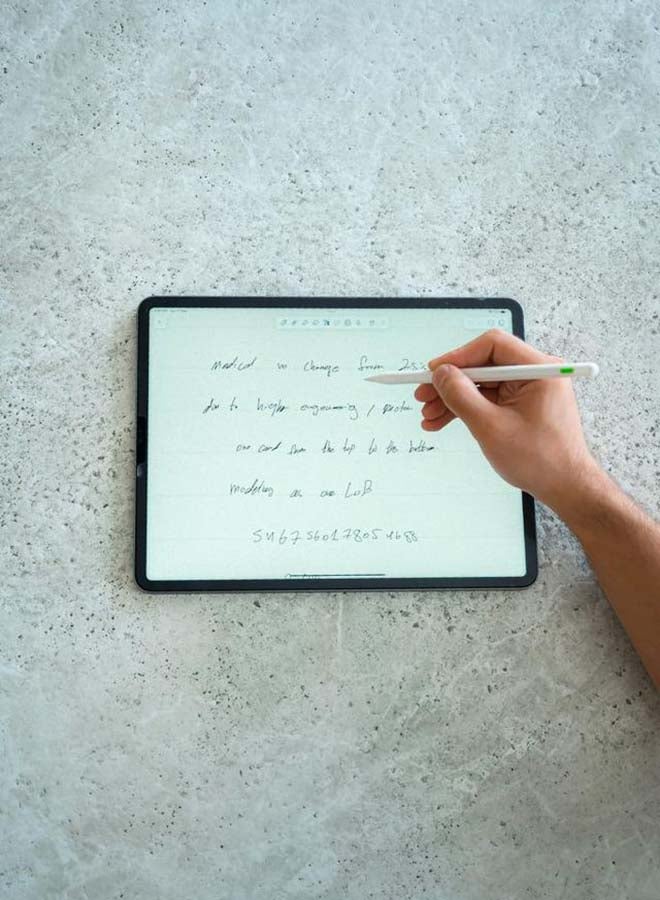 Medical no change from 25%
due to higher engineering /
one card from the top to the bottom
modeling as one LoB
5467 5601 7805 4688